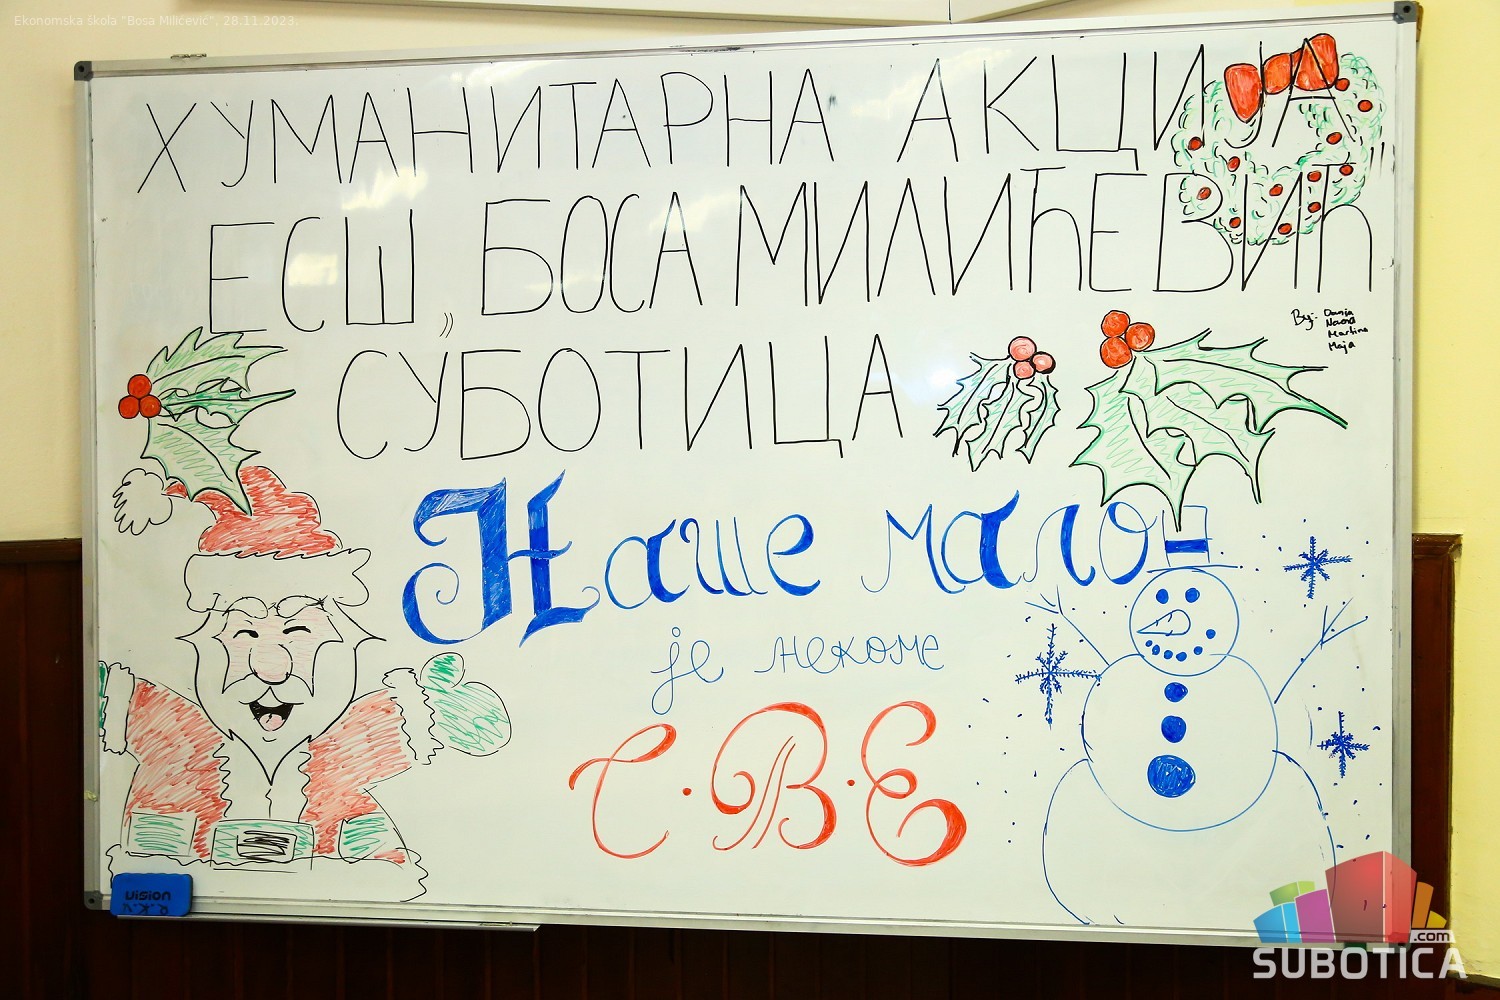 Ekonomska škola "Bosa Milićević", 28.11.2023.
ХУМАНИТАРНА АКЦИЈА
ЕСШ „БОСА МИЛИЋЕВИЋ"
СУБОТИЦА
By:
Martina
Maja
Наше мало
је некоме
С·В·Е
vision
.com
SUBOTICA